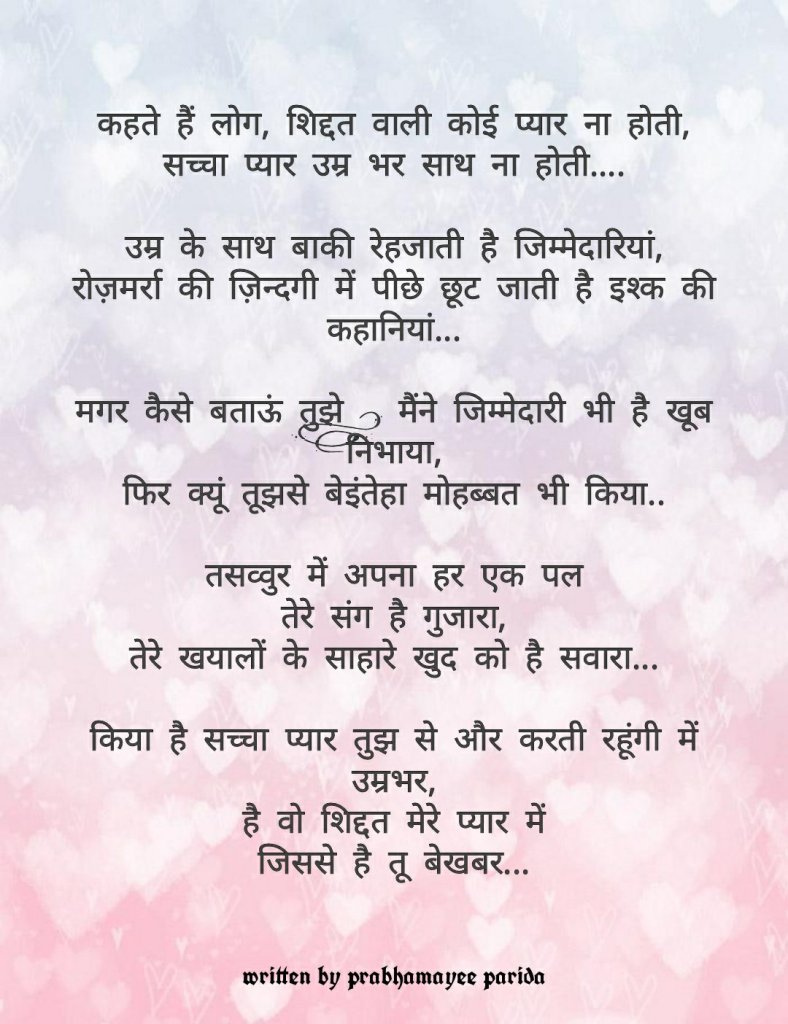 कहते हैं लोग, शिद्दत वाली कोई प्यार ना होती,
सच्चा प्यार उम्र भर साथ ना होती....
उम्र के साथ बाकी रेहजाती है जिम्मेदारियां,
रोज़मर्रा की ज़िन्दगी में पीछे छूट जाती है इश्क की
कहानियां...
मगर कैसे बताऊं तुझे मैंने जिम्मेदारी भी है खूब
निभाया,
फिर क्यूं तूझसे बेइंतेहा मोहब्बत भी किया..
तसव्वुर में अपना हर एक पल
तेरे संग है गुजारा,
तेरे खयालों के साहारे खुद को है सवारा...
किया है सच्चा प्यार तुझ से और करती रहूंगी में
उम्रभर,
है वो शिद्दत मेरे प्यार में
जिससे है तू बेखबर...
written by prabhamayee parida